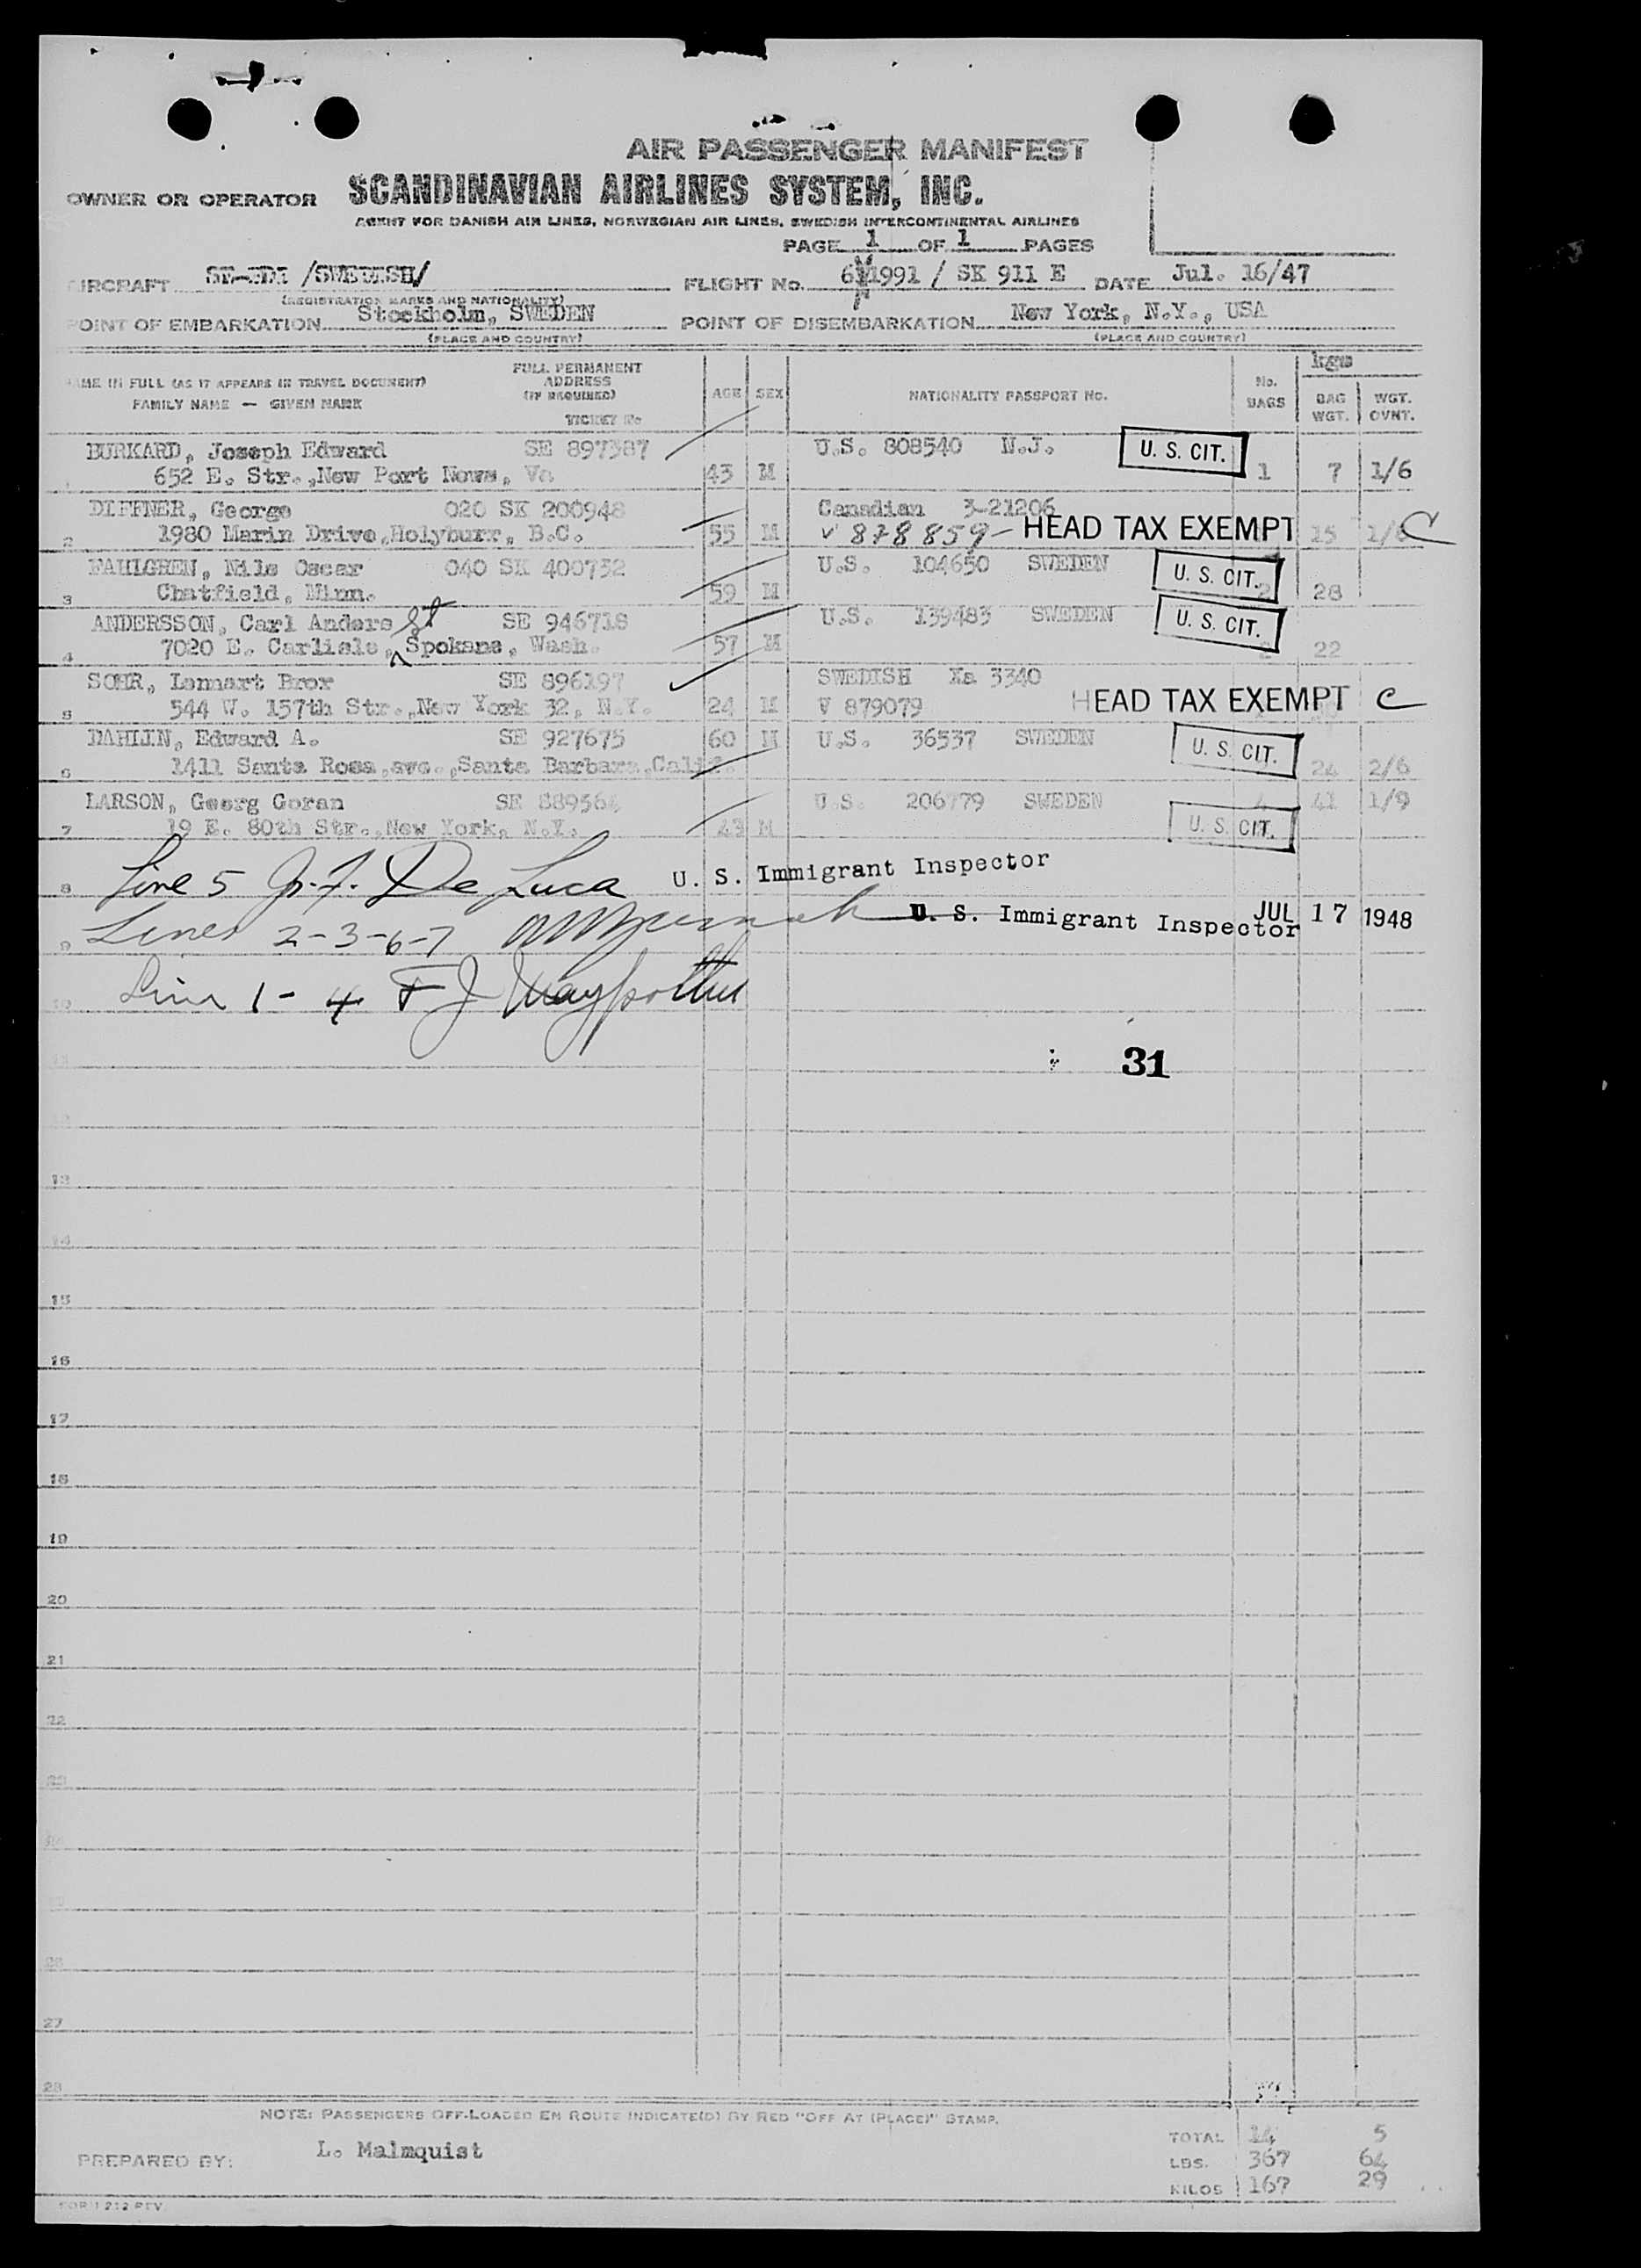 AIR PASSENGER MANIFEST
OWNER OR OPERATOR SCANDINAVIAN AIRLINES SYSTEM, INC.
AGENT FOR DANISH AIR LINES, NORWEGIAN AIR LINES, SWEDISH INTERCONTINENTAL AIRLINES
PAGE 1 OF 1 PAGES
AIRCRAFT /SWEDISH/ FLIGHT No. 1991 / SK 911 E DATE Jul. 16/47
(REGISTRATION MARKS AND NATIONALITY)
POINT OF EMBARKATION Stockholm, SWEDEN POINT OF DISEMBARKATION New York, N.Y., USA
(PLACE AND COUNTRY) (PLACE AND COUNTRY)
NAME IN FULL (AS IT APPEARS IN TRAVEL DOCUMENT) FAMILY NAME — GIVEN NAME
FULL PERMANENT ADDRESS (IF REQUIRED) TICKET No
AGE SEX NATIONALITY PASSPORT No. No. BAGS kgs BAG WGT. WGT. OVNT.
BURKARD, Joseph Edward SE 897387 U.S. 808540 N.J. U. S. CIT.
652 E. Str.,New Port News, Va 43 M 1 7 1/6
DIFFNER, George 020 SK 200948 Canadian 3-21206
2 1980 Marin Drive,Holyburr, B.C. 55 M v 878859- HEAD TAX EXEMPT 15 C
FAHLGREN, Nils Oscar 040 SK 400732 U.S. 104650 SWEDEN U. S. CIT.
3 Chatfield, Minn. 59 M 2 28
ANDERSSON, Carl Anders St SE 946718 U.S. 139483 SWEDEN U. S. CIT.
4 7020 E. Carlisle, Spokane, Wash. 57 M 22
SOHR, Lennart Bror SE 896197 SWEDISH Xa 3340
5 544 W. 157th Str.,New York 32, N.Y. 24 M V 879079 HEAD TAX EXEMPT C
DAHLIN, Edward A. SE 927675 60 M U.S. 36537 SWEDEN U. S. CIT.
6 1411 Santa Rosa,ave.,Santa Barbara,Calif. 24 2/6
LARSON, Georg Goran SE 889564 U.S. 206779 SWEDEN 4 41 1/9
7 19 E. 80th Str.,New York, N.Y. 43 M U. S. CIT.
8 Line 5 De Luca U. S. Immigrant Inspector
9 Lines 2-3-6-7 U. S. Immigrant Inspector JUL 17 1948
10 Line 1 - 4 F J
31
12
13
14
15
16
17
18
19
20
21
22
23
26
27
28
NOTE: PASSENGERS OFF-LOADED EN ROUTE INDICATE(D) BY RED "OFF AT (PLACE)" STAMP.
TOTAL 14 5
PREPARED BY: L. Malmquist
LBS. 367 64
KILOS 167 29
FORM 212 REV.